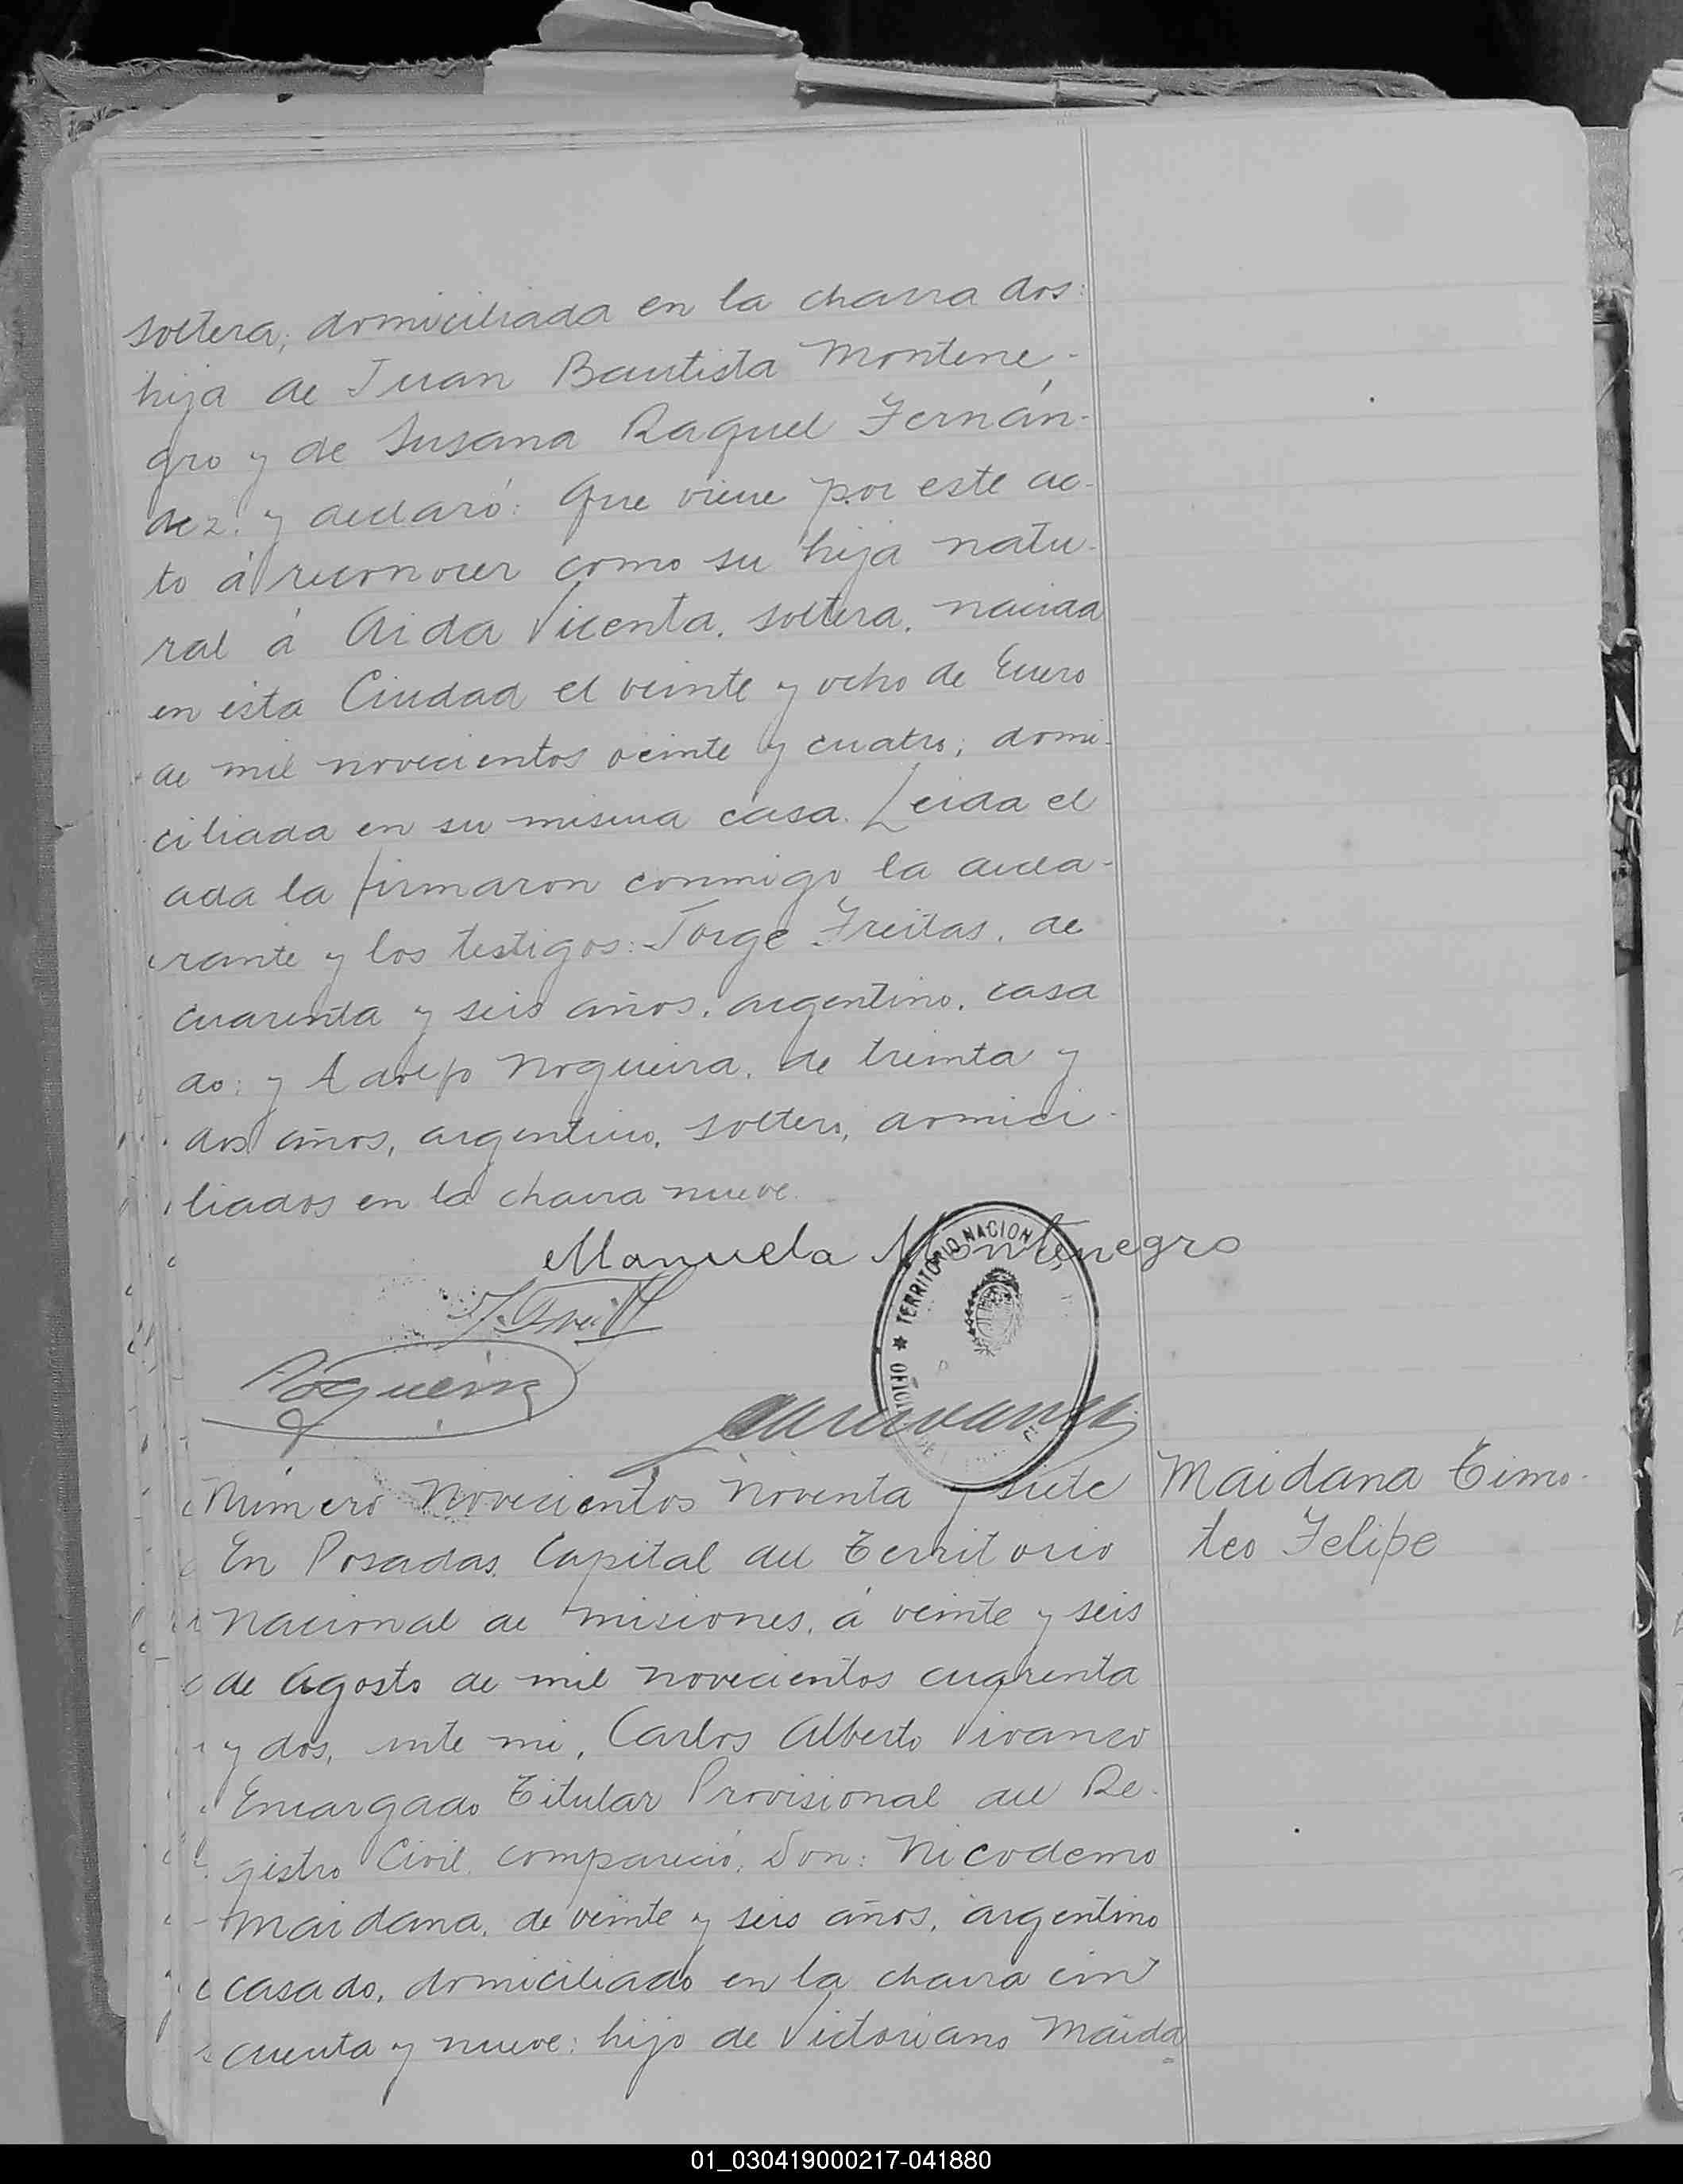 soltera, domiciliada en la chacra dos:
hija de Juan Bautista Montene-
gro y de Susana Raquel Fernán-
dez: y declaró: Que viene por este ac-
to á reconocer como su hija natu-
ral á Aida Vicenta, soltera, nacida
en ésta Ciudad el veinte y ocho de Enero
de mil novecientos veinte y cuatro; domi-
ciliada en su misma casa. Leida el
acta la firmaron conmigo la decla-
rante y los testigos: Jorge Freitas, de
cuarenta y seis años, argentino, casa
do; y Adolfo Nogueira, de treinta y
dos años, argentino, soltero, domici-
liados en la chacra nueve.
Manuela Montenegro
TERRITORIO NACIONAL
Nogueira
Número Novecientos Noventa y siete
Maidana Timo-
teo Felipe
En Posadas, Capital del Territorio
Nacional de Misiones, á veinte y seis
de Agosto de mil novecientos cuarenta
y dos, ante mi, Carlos Alberto Vivanco
Encargado Titular Provisional del Re-
gistro Civil, compareció, Don: Nicodemo
Maidana, de veinte y seis años, argentino
casado, domiciliado en la chacra cin
cuenta y nueve: hijo de Victoriano Maida
01_030419000217-041880